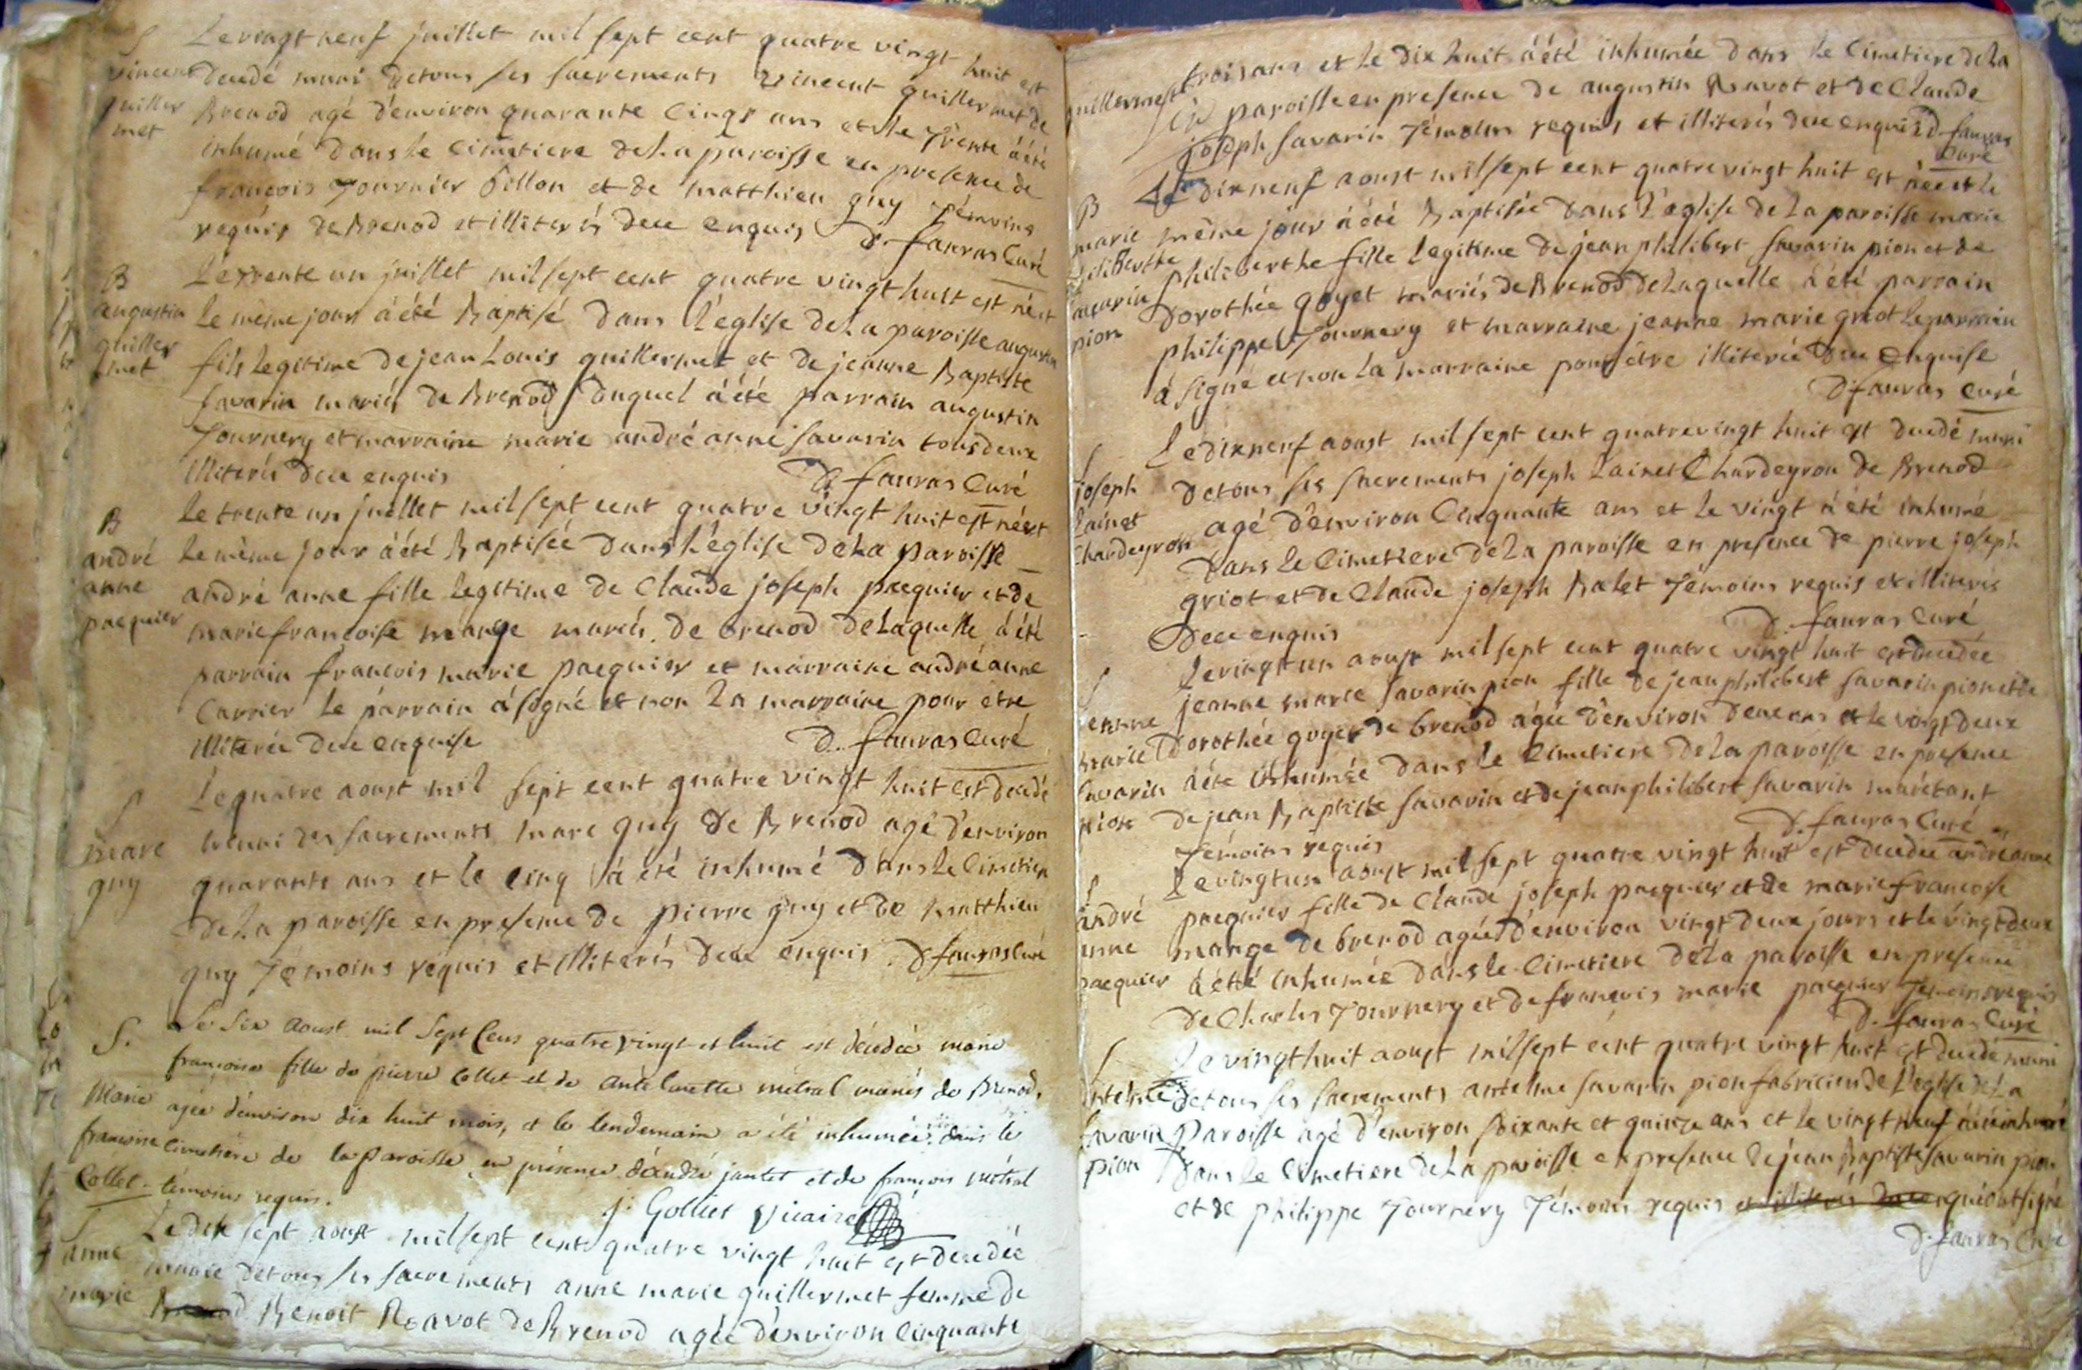 S
vincent
guiller
met
Le vingt neuf juillet mil sept cent quatre vingt huit est
decedé muni detous ses sacrements vincent guillermet de
Brenod agé d'environ quarante cinq ans et le trente à été
inhumé dans le cimetiere de la paroisse en presence de
françois Tournier billon et de matthieu guy témoins
requis de Brenod et illiterés de ce enquis d. fauras Curé
B
augustin
guiller
met
Le trente un juillet mil sept cent quatre vingt huit est né et
le même jour à été Baptisé dans l'église de la paroisse augustin
fils legitime de jean Louis guillermet et de jeanne Baptiste
savarin mariés de Brenod duquel à été parrain augustin
Tournery et marraine marie andré anne savarin tous deux
illiterés de ce enquis d. fauras Curé
B
andré
anne
pacquier
Le trente un juillet mil sept cent quatre vingt huit est né et
le même jour à été Baptisée dans l'église de la paroisse
andré anne fille legitime de Claude joseph pacquier et de
marie françoise mange mariés de brenod de laquelle à été
parrain françois marie pacquier et marraine andré anne
Carrier le parrain à signé et non la marraine pour être
illiterée de ce enquise d. fauras Curé
S
marc
guy
Le quatre aoust mil sept cent quatre vingt huit est decedé
muni des sacrements marc guy de Brenod agé d'environ
quarante ans et le cinq à été inhumé dans le Cimetiere
de la paroisse en presence de pierre guy et de matthieu
guy Témoins requis et illiterés de ce enquis. d fauras Curé
S.
Marie
francoise
Collet
Le Six Aoust mil Sept Cens quatre vingt et huit est décedée marie
françoise fille de pierre Collet et de Antelmette métral mariés de Brenod,
agée d'environ dix huit mois, et le lendemain a été inhumée dans le
cimetière de la paroisse en présence d'andré jantet et de françois métral
témoins requis.
j. Golliet Vicaire
S
anne
marie
guillermet
Le dix sept aoust mil sept cent quatre vingt huit est decedée
munie detous ses sacrements anne marie guillermet femme de
Brenod Benoit Ravot de Brenod agée d'environ cinquante
trois ans et le dix huit à été inhumée dans le Cimetiere de la
paroisse en presence de augustin Ravot et de Claude
joseph savarin Témoins requis et illiterés de ce enquis d. fauras
Curé
B
marie
philiberthe
savarin
pion
Le dix neuf aoust mil sept cent quatre vingt huit est née et le
même jour à été Baptisée dans l'église de la paroisse marie
philiberthe fille legitime de jean philibert savarin pion et de
Dorothée goyet mariés de Brenod de laquelle à été parrain
philippe Tournery et marraine jeanne marie griot le parrain
à signé et non la marraine pour être illiterée de ce enquise
d fauras Curé
S
joseph
Lainet
Chardeyron
Le dix neuf aoust mil sept cent quatre vingt huit est decedé muni
detous ses sacrements joseph Lainet Chardeyron de Brenod
agé d'environ Cinquante ans et le vingt à été inhumé
dans le Cimetiere de la paroisse en presence de pierre joseph
griot et de Claude joseph Balet Témoins requis et illiterés
de ce enquis d. fauras Curé
S
jeanne
marie
savarin
pion
Le vingt un aoust mil sept cent quatre vingt huit est decedée
jeanne marie savarin pion fille de jean philibert savarin pion et de
Dorothée goyet de brenod agée d'environ deux ans et le vingt deux
à été inhumée dans le Cimetiere de la paroisse en presence
de jean Baptiste savarin et de jean philibert savarin
Témoins requis d. fauras Curé
S
andré
anne
pacquier
Le vingt un aoust mil sept quatre vingt huit est decedée andré anne
pacquier fille de Claude joseph pacquier et de marie françoise
mange de brenod agée d'environ vingt deux jours et le vingt deux
à été inhumée dans le Cimetiere de la paroisse en presence
de Charles Tournery et de françois marie pacquier Témoins requis
d. fauras Curé
S
antelme
savarin
pion
Le vingt huit aoust mil sept cent quatre vingt huit est decedé muni
detous ses sacrements antelme savarin pion fabricien de l'eglise de la
Paroisse agé d'environ soixante et quinze ans et le vingt neuf à été inhumé
dans le Cimetiere de la paroisse en presence de jean Baptiste savarin pion
et de philippe Tournery Témoins requis et illiterés de ce enquis ont signé
d. fauras Curé